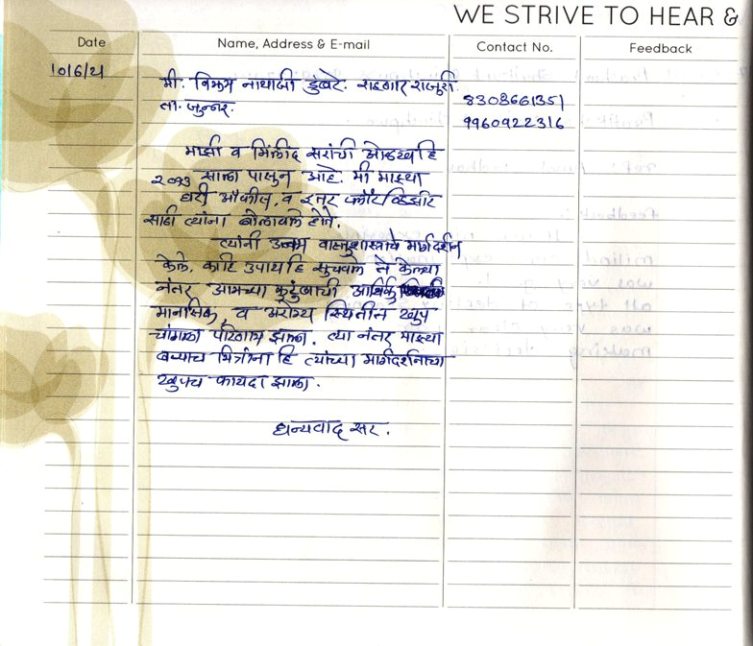 WE STRIVE TO HEAR &
Date Name, Address & E-mail Contact No. Feedback
10/6/21 मी. विक्रम नाथाजी डुंबरे. राहणार राजुरी.
ता. जुन्नर.
8308661351
9960922316
माझी व मिलींद सरांची ओळख हि
साला पासुन आहे. मी माझ्या
घरी ऑफीस, व इतर प्लॉट व्हिजीट
साठी त्यांना बोलावले होते.
त्यांनी उत्तम वास्तुशास्त्राचे मार्गदर्शन
केले. काही उपायहि सुचवले ते केल्या
नंतर आमच्या कुटुंबाची आर्थिक
मानसिक, व आरोग्य स्थितीन खुप
चांगला परिणाम झाला. त्या नंतर माझ्या
बऱ्याच मित्रांना हि त्यांच्या मार्गदर्शनाचा
खुपच फायदा झाला.
धन्यवाद सर.